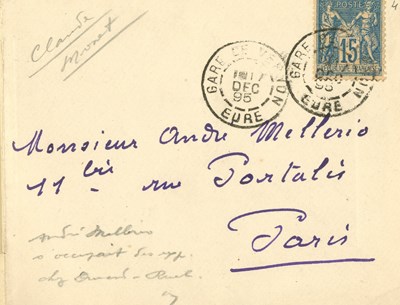 Claude
Monet
4
POSTE
15
GARE DE VERNON
DEC
95
EURE
GARE DE VERNON
DEC
95
EURE
Monsieur André Mellerio
11 bis rue Portalis
Paris
André Mellerio
s'occupait des exp.
chez Durand-Ruel.